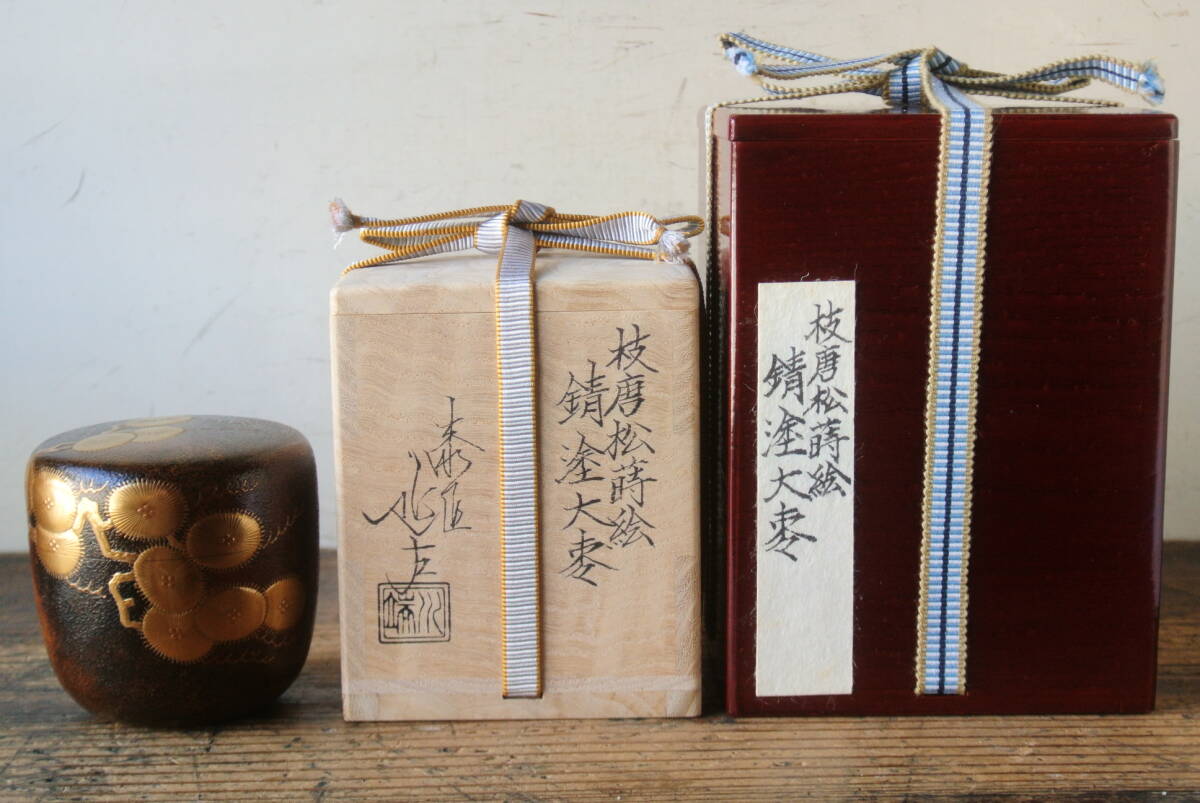 枝唐松蒔絵
錆塗大棗
漆匠
枝唐松蒔絵
錆塗大棗